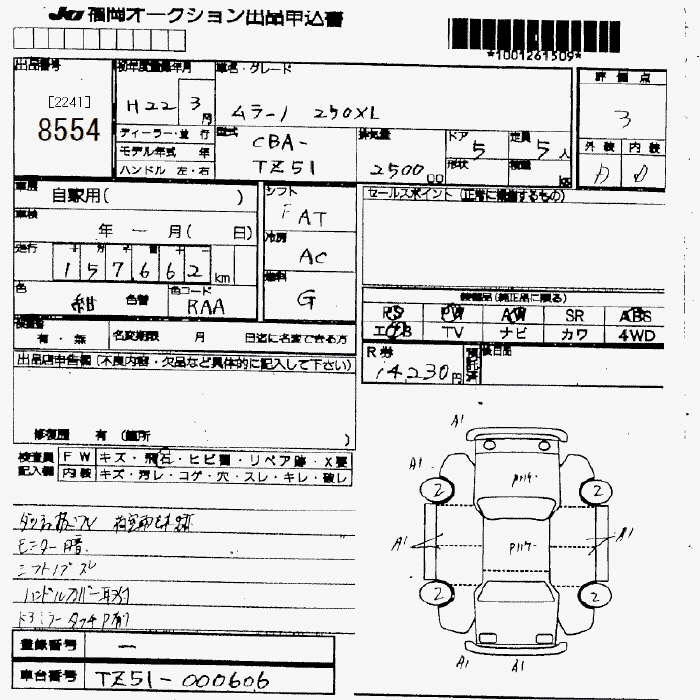 JU 福岡オークション出品申込書
*1001261509*
出品番号 初年度登録年月 車名・グレード 評価点
[2241]
8554
H22 3月 ムラーノ 250XL 3
ディーラー・並行 型式 排気量 ドア 定員 外装 内装
モデル年式 年 CBA- 5 5人
ハンドル 左・右 TZ51 2500cc 形状 積載 kg D D
車歴 自家用( ) シフト セールスポイント (正常に機能するもの)
FAT
車検 年 ー 月( 日) 冷房
走行 157662 km AC
燃料
G
色 紺 色替 色コード RAA
装備品(純正品に限る)
PS PW AW SR ABS
エアB TV ナビ カワ 4WD
有・無 名変期限 月 日迄に名変できる方
R券 14,230円 預託済
出品店申告欄 (不良内容・欠品など具体的に記入して下さい)
修復歴 有 (箇所 )
検査員 FW キズ・飛石・ヒビ割・リペア跡・X要
記入欄 内装 キズ・汚レ・コゲ・穴・スレ・キレ・破レ
モニター暗
シフトノブスレ
ハンドルカバー取付
ドアミラータッチP有り
A1
A1 2 2
A1 A1
2 2
A1 A1
登録番号 ー
車台番号 TZ51-000606